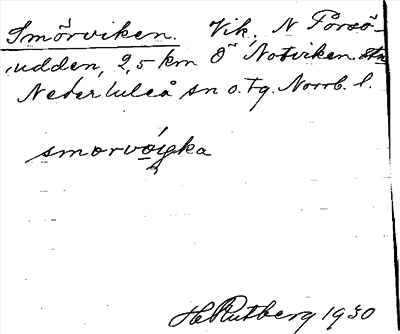 Smörviken. Vik, N Porsö-
udden, 2,5 km Ö Notviken stn
Nederluleå sn o. tg. Norrb. l.
smorvøi̯ka
H. Rutberg 1930